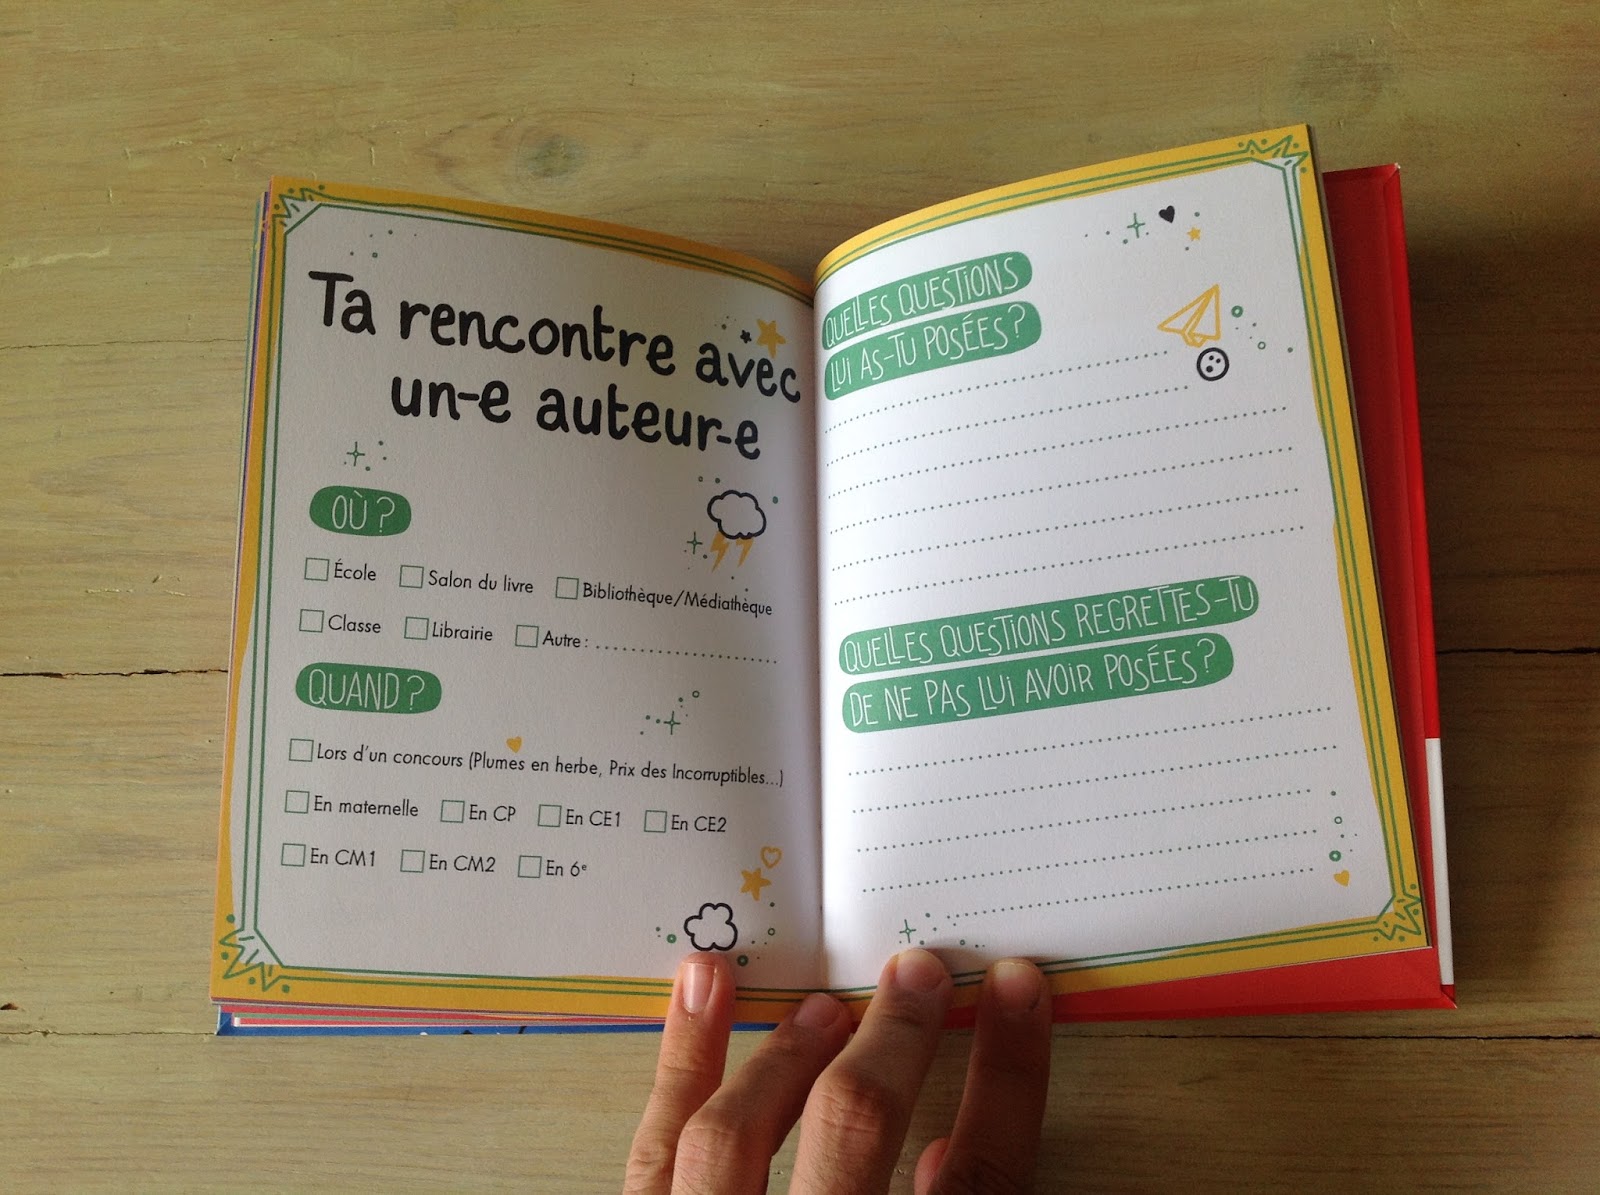 Ta rencontre avec
un-e auteur-e
OÙ ?
École Salon du livre Bibliothèque/Médiathèque
Classe Librairie Autre : ........................
QUAND ?
Lors d'un concours (Plumes en herbe, Prix des Incorruptibles...)
En maternelle En CP En CE1 En CE2
En CM1 En CM2 En 6e
QUELLES QUESTIONS
LUI AS-TU POSÉES ?
QUELLES QUESTIONS REGRETTES-TU
DE NE PAS LUI AVOIR POSÉES ?